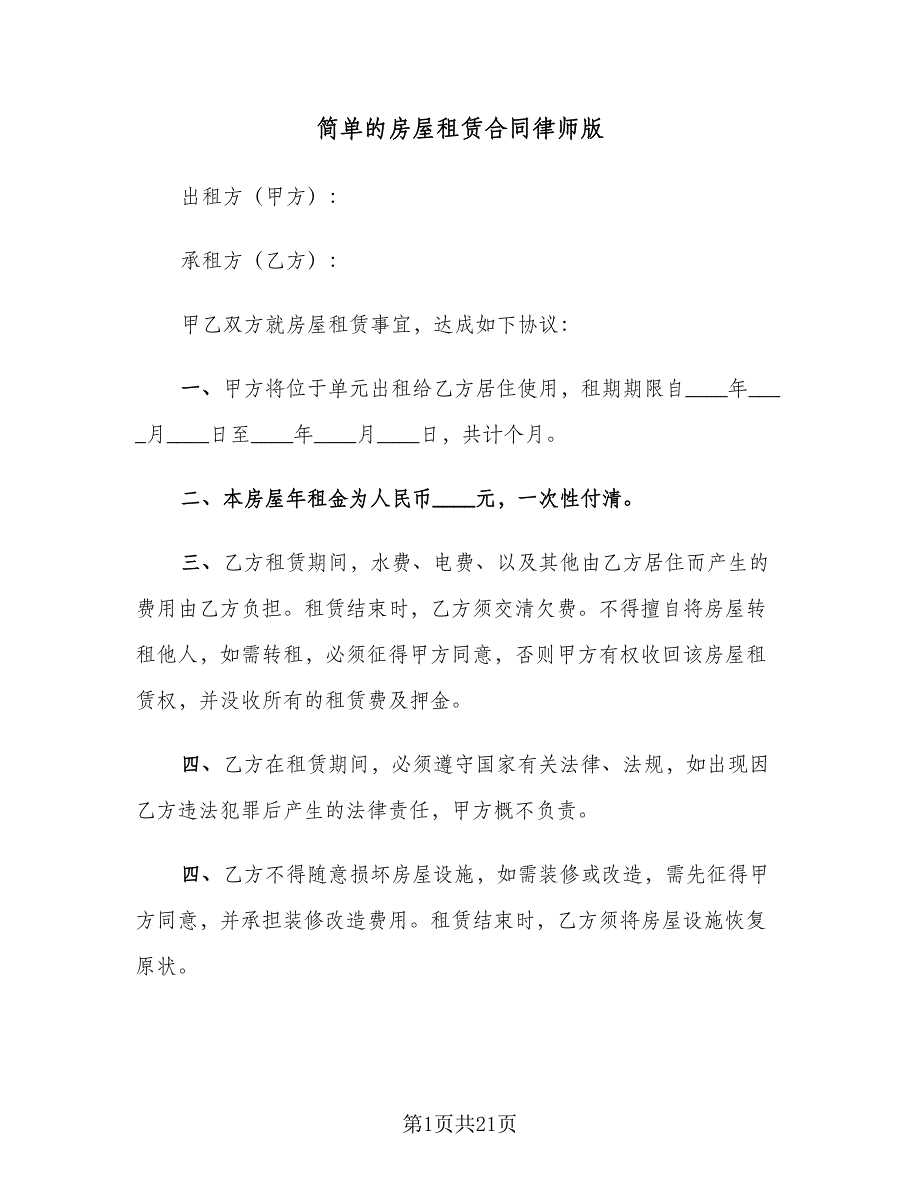 简单的房屋租赁合同律师版
出租方（甲方）：
承租方（乙方）：
甲乙双方就房屋租赁事宜，达成如下协议：
一、甲方将位于单元出租给乙方居住使用，租期期限自____年___
_月____日至____年____月____日，共计个月。
二、本房屋年租金为人民币____元，一次性付清。
三、乙方租赁期间，水费、电费、以及其他由乙方居住而产生的
费用由乙方负担。租赁结束时，乙方须交清欠费。不得擅自将房屋转
租他人，如需转租，必须征得甲方同意，否则甲方有权收回该房屋租
赁权，并没收所有的租赁费及押金。
四、乙方在租赁期间，必须遵守国家有关法律、法规，如出现因
乙方违法犯罪后产生的法律责任，甲方概不负责。
四、乙方不得随意损坏房屋设施，如需装修或改造，需先征得甲
方同意，并承担装修改造费用。租赁结束时，乙方须将房屋设施恢复
原状。
第1页共21页